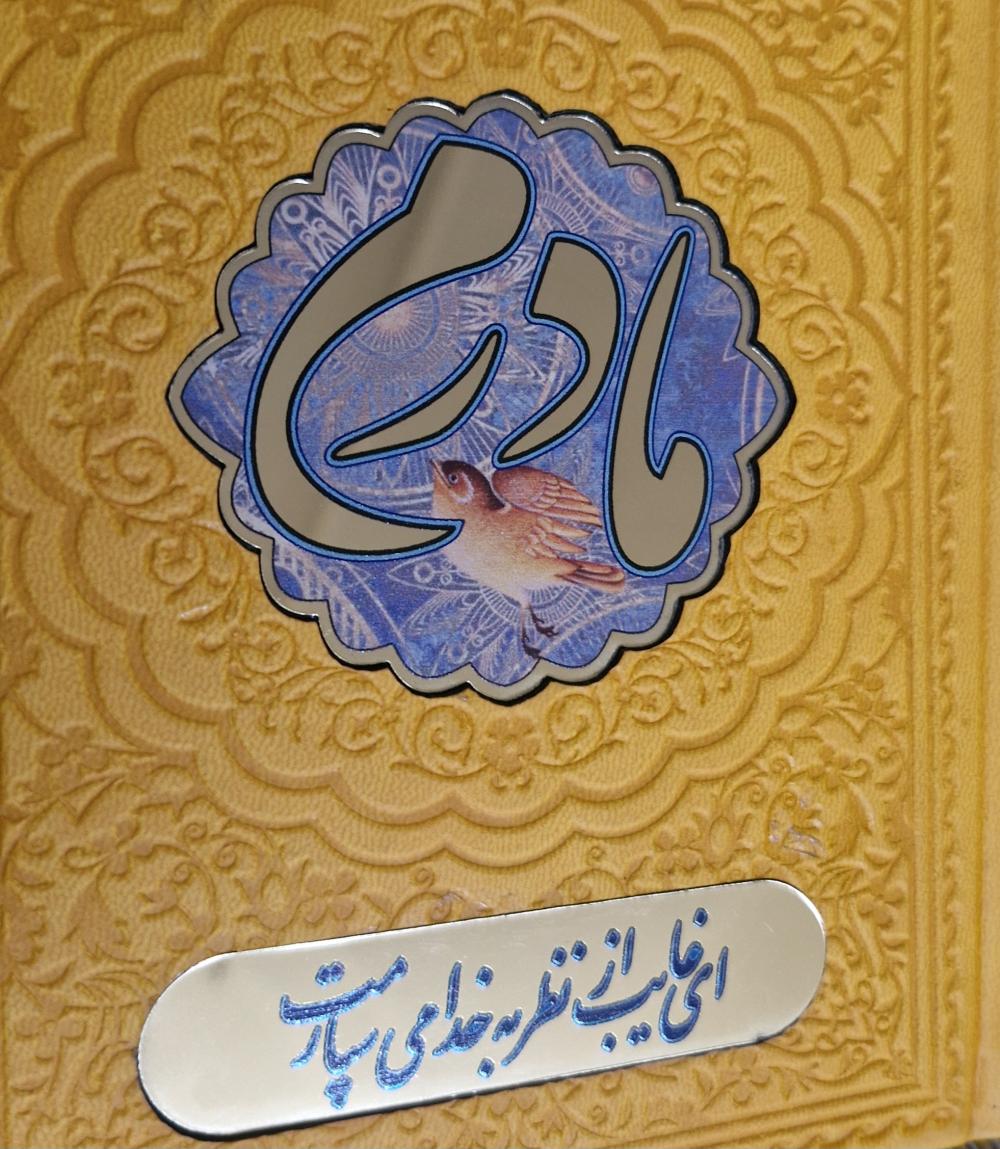 مادرم
ای غایب از نظر به خدا می سپارمت